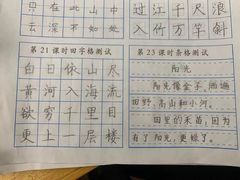 只在此山中
云深不知处
过江千尺浪
入竹万竿斜
第21课时田字格测试
白日依山尽
黄河入海流
欲穷千里目
更上一层楼
第23课时条格测试
阳光
阳光像金子，洒遍
田野、高山和小河。
田里的禾苗，因为
有了阳光，更绿了。